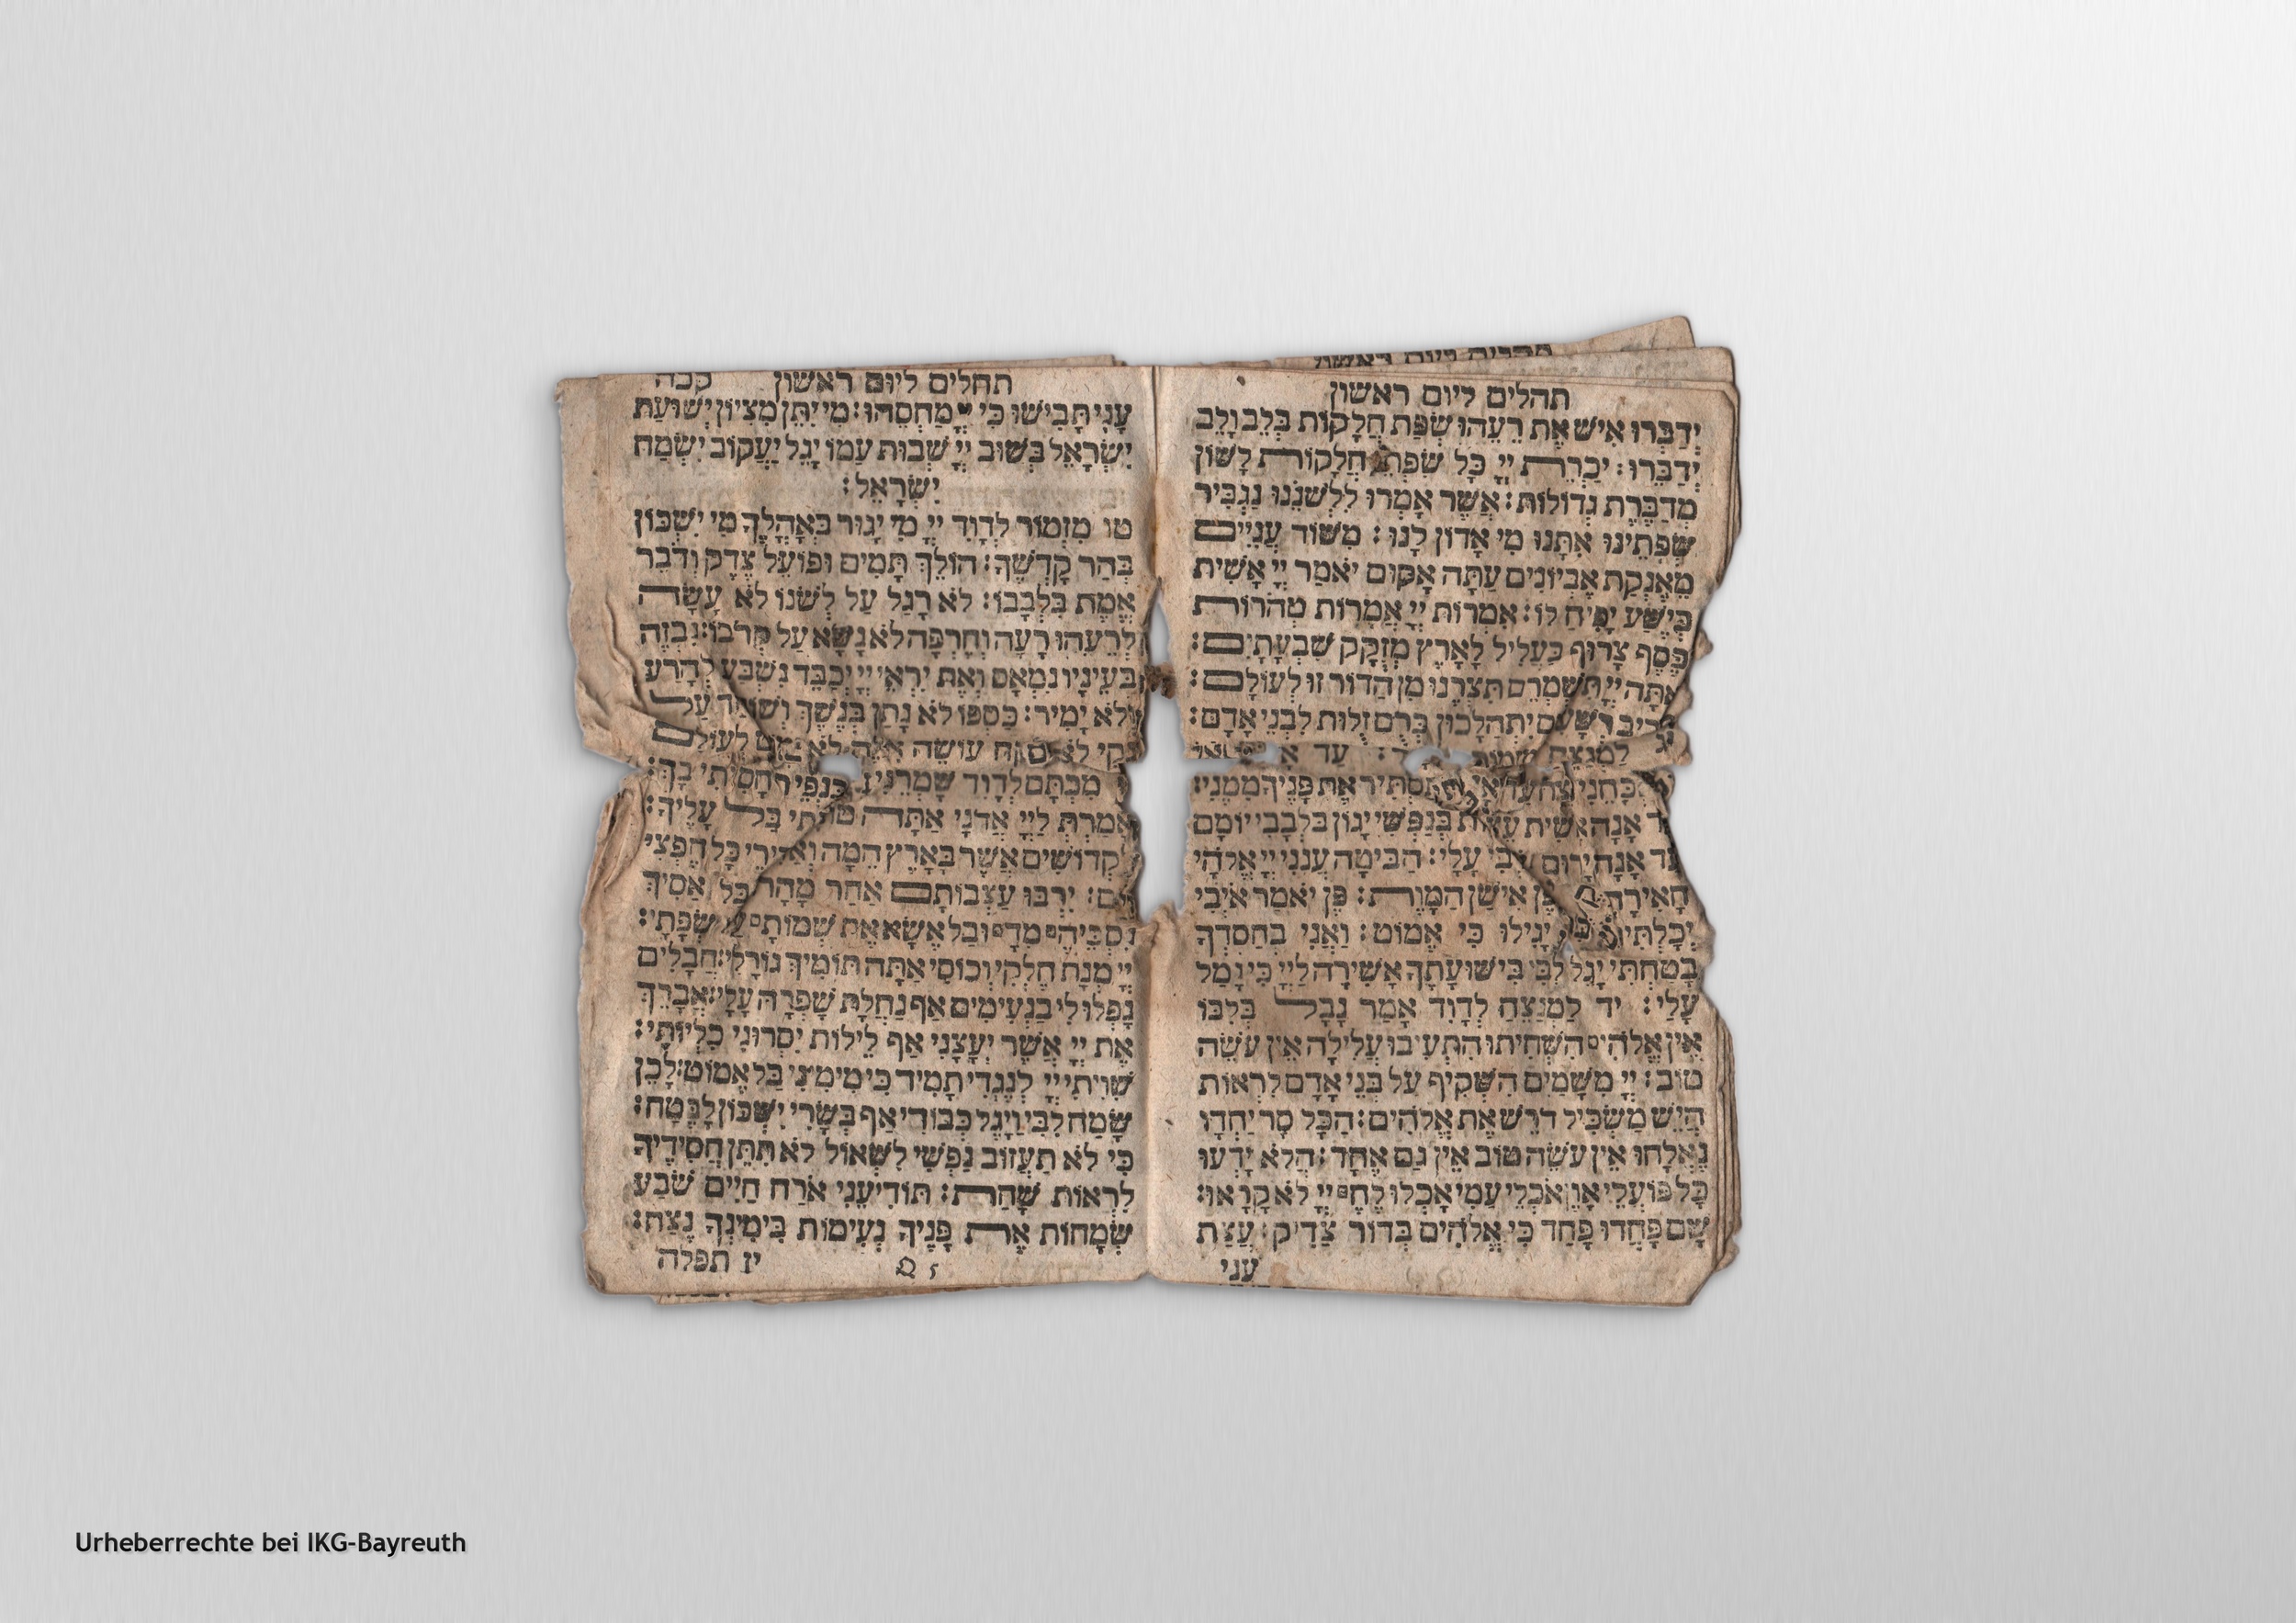 תהלים ליום ראשון
יְדַבְּרוּ אִישׁ אֶת רֵעֵהוּ שְׂפַת חֲלָקוֹת בְּלֵב וָלֵב
יְדַבֵּרוּ: יַכְרֵת יְיָ כָּל שִׂפְתֵי חֲלָקוֹת לָשׁוֹן
מְדַבֶּרֶת גְדוֹלוֹת: אֲשֶׁר אָמְרוּ לִלְשֹׁנֵנוּ נַגְבִּיר
שְׂפָתֵינוּ אִתָּנוּ מִי אָדוֹן לָנוּ: מִשּׁוֹד עֲנִיִּים
מֵאֶנְקַת אֶבְיוֹנִים עַתָּה אָקוּם יֹאמַר יְיָ אָשִׁית
בְּיֵשַׁע יָפִיחַ לוֹ: אִמְרוֹת יְיָ אֲמָרוֹת טְהֹרוֹת
כֶּסֶף צָרוּף בַּעֲלִיל לָאָרֶץ מְזֻקָּק שִׁבְעָתָיִם:
אַתָּה יְיָ תִּשְׁמְרֵם תִּצְּרֶנּוּ מִן הַדּוֹר זוּ לְעוֹלָם:
סָבִיב רְשָׁעִים יִתְהַלָּכוּן כְּרֻם זֻלּוּת לִבְנֵי אָדָם:
יג לַמְנַצֵּחַ עַד
תַּסְתִּיר אֶת פָּנֶיךָ מִמֶּנִּי:
עַד אָנָה אָשִׁית עֵצוֹת בְּנַפְשִׁי יָגוֹן בִּלְבָבִי יוֹמָם
עַד אָנָה יָרוּם אֹיְבִי עָלָי: הַבִּיטָה עֲנֵנִי יְיָ אֱלֹהָי
הָאִירָה פֶּן אִישַׁן הַמָּוֶת: פֶּן יֹאמַר אֹיְבִי
יְכָלְתִּיו יָגִילוּ כִּי אֶמּוֹט: וַאֲנִי בְּחַסְדְּךָ
בָטַחְתִּי יָגֵל לִבִּי בִּישׁוּעָתֶךָ אָשִׁירָה לַיְיָ כִּי גָמַל
עָלָי: יד לַמְנַצֵּחַ לְדָוִד אָמַר נָבָל בְּלִבּוֹ
אֵין אֱלֹהִים הִשְׁחִיתוּ הִתְעִיבוּ עֲלִילָה אֵין עֹשֵׂה
טוֹב: יְיָ מִשָּׁמַיִם הִשְׁקִיף עַל בְּנֵי אָדָם לִרְאוֹת
הֲיֵשׁ מַשְׂכִּיל דֹּרֵשׁ אֶת אֱלֹהִים: הַכֹּל סָר יַחְדָּו
נֶאֱלָחוּ אֵין עֹשֵׂה טוֹב אֵין גַּם אֶחָד: הֲלֹא יָדְעוּ
כָּל פּוֹעֲלֵי אָוֶן אֹכְלֵי עַמִּי אָכְלוּ לֶחֶם יְיָ לֹא קָרָאוּ:
שָׁם פָּחֲדוּ פָחַד כִּי אֱלֹהִים בְּדוֹר צַדִּיק: עֲצַת
עני
תהלים ליום ראשון קכה
עָנִי תָבִישׁוּ כִּי יְיָ מַחְסֵהוּ: מִי יִתֵּן מִצִּיוֹן יְשׁוּעַת
יִשְׂרָאֵל בְּשׁוּב יְיָ שְׁבוּת עַמּוֹ יָגֵל יַעֲקוֹב יִשְׂמַח
יִשְׂרָאֵל:
טו מִזְמוֹר לְדָוִד יְיָ מִי יָגוּר בְּאָהֳלֶךָ מִי יִשְׁכּוֹן
בְּהַר קָדְשֶׁךָ: הוֹלֵךְ תָּמִים וּפוֹעֵל צֶדֶק וְדֹבֵר
אֱמֶת בִּלְבָבוֹ: לֹא רָגַל עַל לְשֹׁנוֹ לֹא עָשָׂה
לְרֵעֵהוּ רָעָה וְחֶרְפָּה לֹא נָשָׂא עַל קְרֹבוֹ: נִבְזֶה
בְּעֵינָיו נִמְאָס וְאֶת יִרְאֵי יְיָ יְכַבֵּד נִשְׁבַּע לְהָרַע
וְלֹא יָמִיר: כַּסְפּוֹ לֹא נָתַן בְּנֶשֶׁךְ וְשׁוֹחַד עַל
נָקִי לֹא לָקָח עוֹשֵׂה אֵלֶּה לֹא יִמּוֹט לְעוֹלָם
מִכְתָּם לְדָוִד שָׁמְרֵנִי חָסִיתִי בָךְ:
אָמַרְתְּ לַייָ אֲדֹנָי אַתָּה טוֹבָתִי בַּל עָלֶיךָ:
לִקְדוֹשִׁים אֲשֶׁר בָּאָרֶץ הֵמָּה וְאַדִּירֵי כָּל חֶפְצִי
בָם: יִרְבּוּ עַצְּבוֹתָם אַחֵר מָהָרוּ בַּל אַסִּיךְ
נִסְכֵּיהֶם מִדָּם וּבַל אֶשָּׂא אֶת שְׁמוֹתָם עַל שְׂפָתָי:
יְיָ מְנָת חֶלְקִי וְכוֹסִי אַתָּה תּוֹמִיךְ גּוֹרָלִי: חֲבָלִים
נָפְלוּ לִי בַּנְּעִימִים אַף נַחֲלָת שָׁפְרָה עָלָי: אֲבָרֵךְ
אֶת יְיָ אֲשֶׁר יְעָצָנִי אַף לֵילוֹת יִסְּרוּנִי כִלְיוֹתָי:
שִׁוִּיתִי יְיָ לְנֶגְדִּי תָמִיד כִּי מִימִינִי בַּל אֶמּוֹט: לָכֵן
שָׂמַח לִבִּי וַיָּגֶל כְּבוֹדִי אַף בְּשָׂרִי יִשְׁכּוֹן לָבֶטַח:
כִּי לֹא תַעֲזוֹב נַפְשִׁי לִשְׁאוֹל לֹא תִתֵּן חֲסִידֶיךָ
לִרְאוֹת שָׁחַת: תּוֹדִיעֵנִי אֹרַח חַיִּים שֹׂבַע
שְׂמָחוֹת אֶת פָּנֶיךָ נְעִימוֹת בִּימִינְךָ נֶצַח:
יז תפלה
Urheberrechte bei IKG-Bayreuth